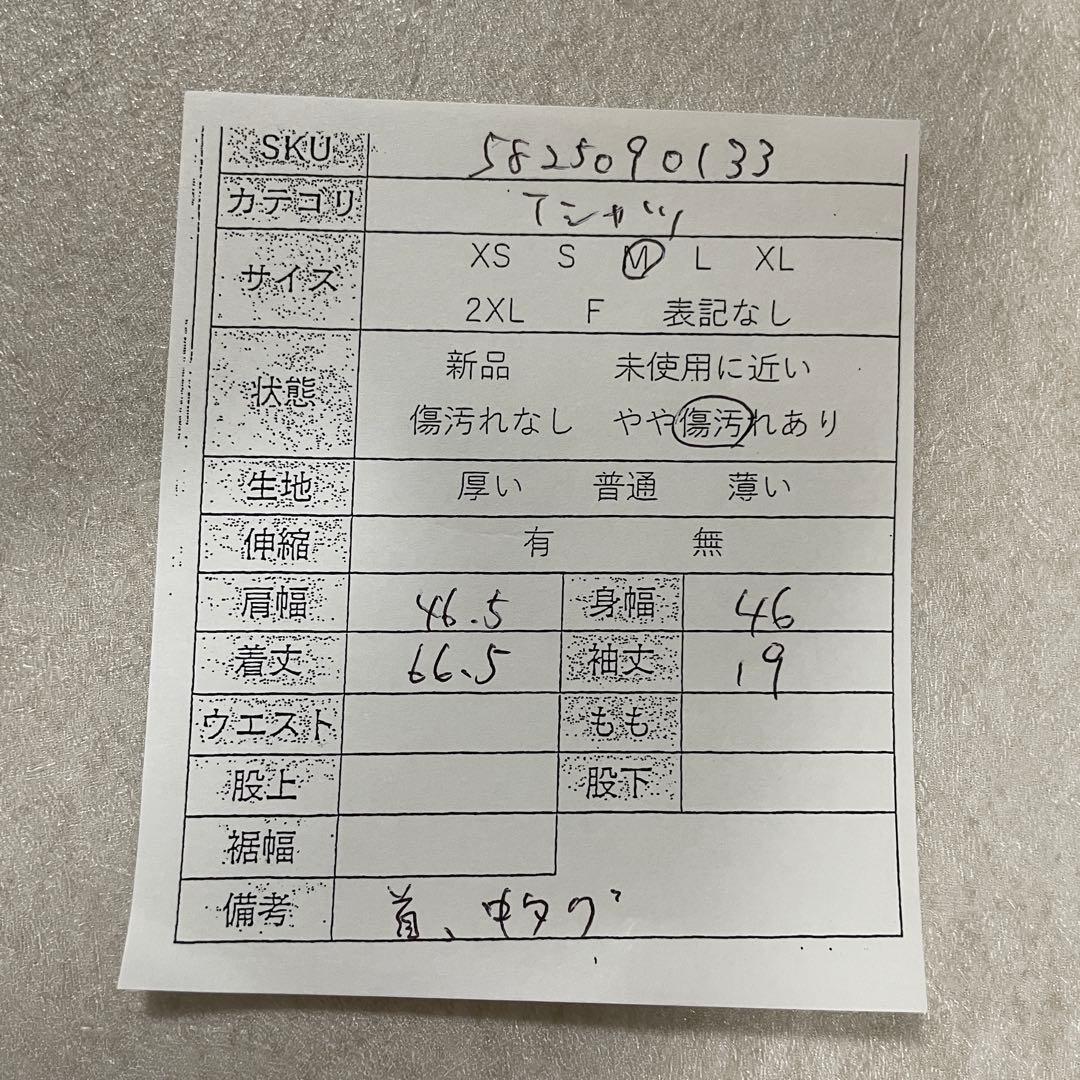 SKU 5825090133
カテゴリ Tシャツ
サイズ XS S M L XL
2XL F 表記なし
状態 新品 未使用に近い
傷汚れなし やや傷汚れあり
生地 厚い 普通 薄い
伸縮 有 無
肩幅 46.5 身幅 46
着丈 66.5 袖丈 19
ウエスト もも
股上 股下
裾幅
備考 首、中タグ